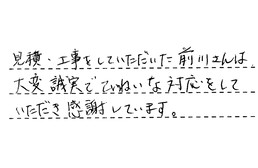 見積・工事をしていただいた前川さんは
大変誠実でていねいな対応をして
いただき感謝しています。